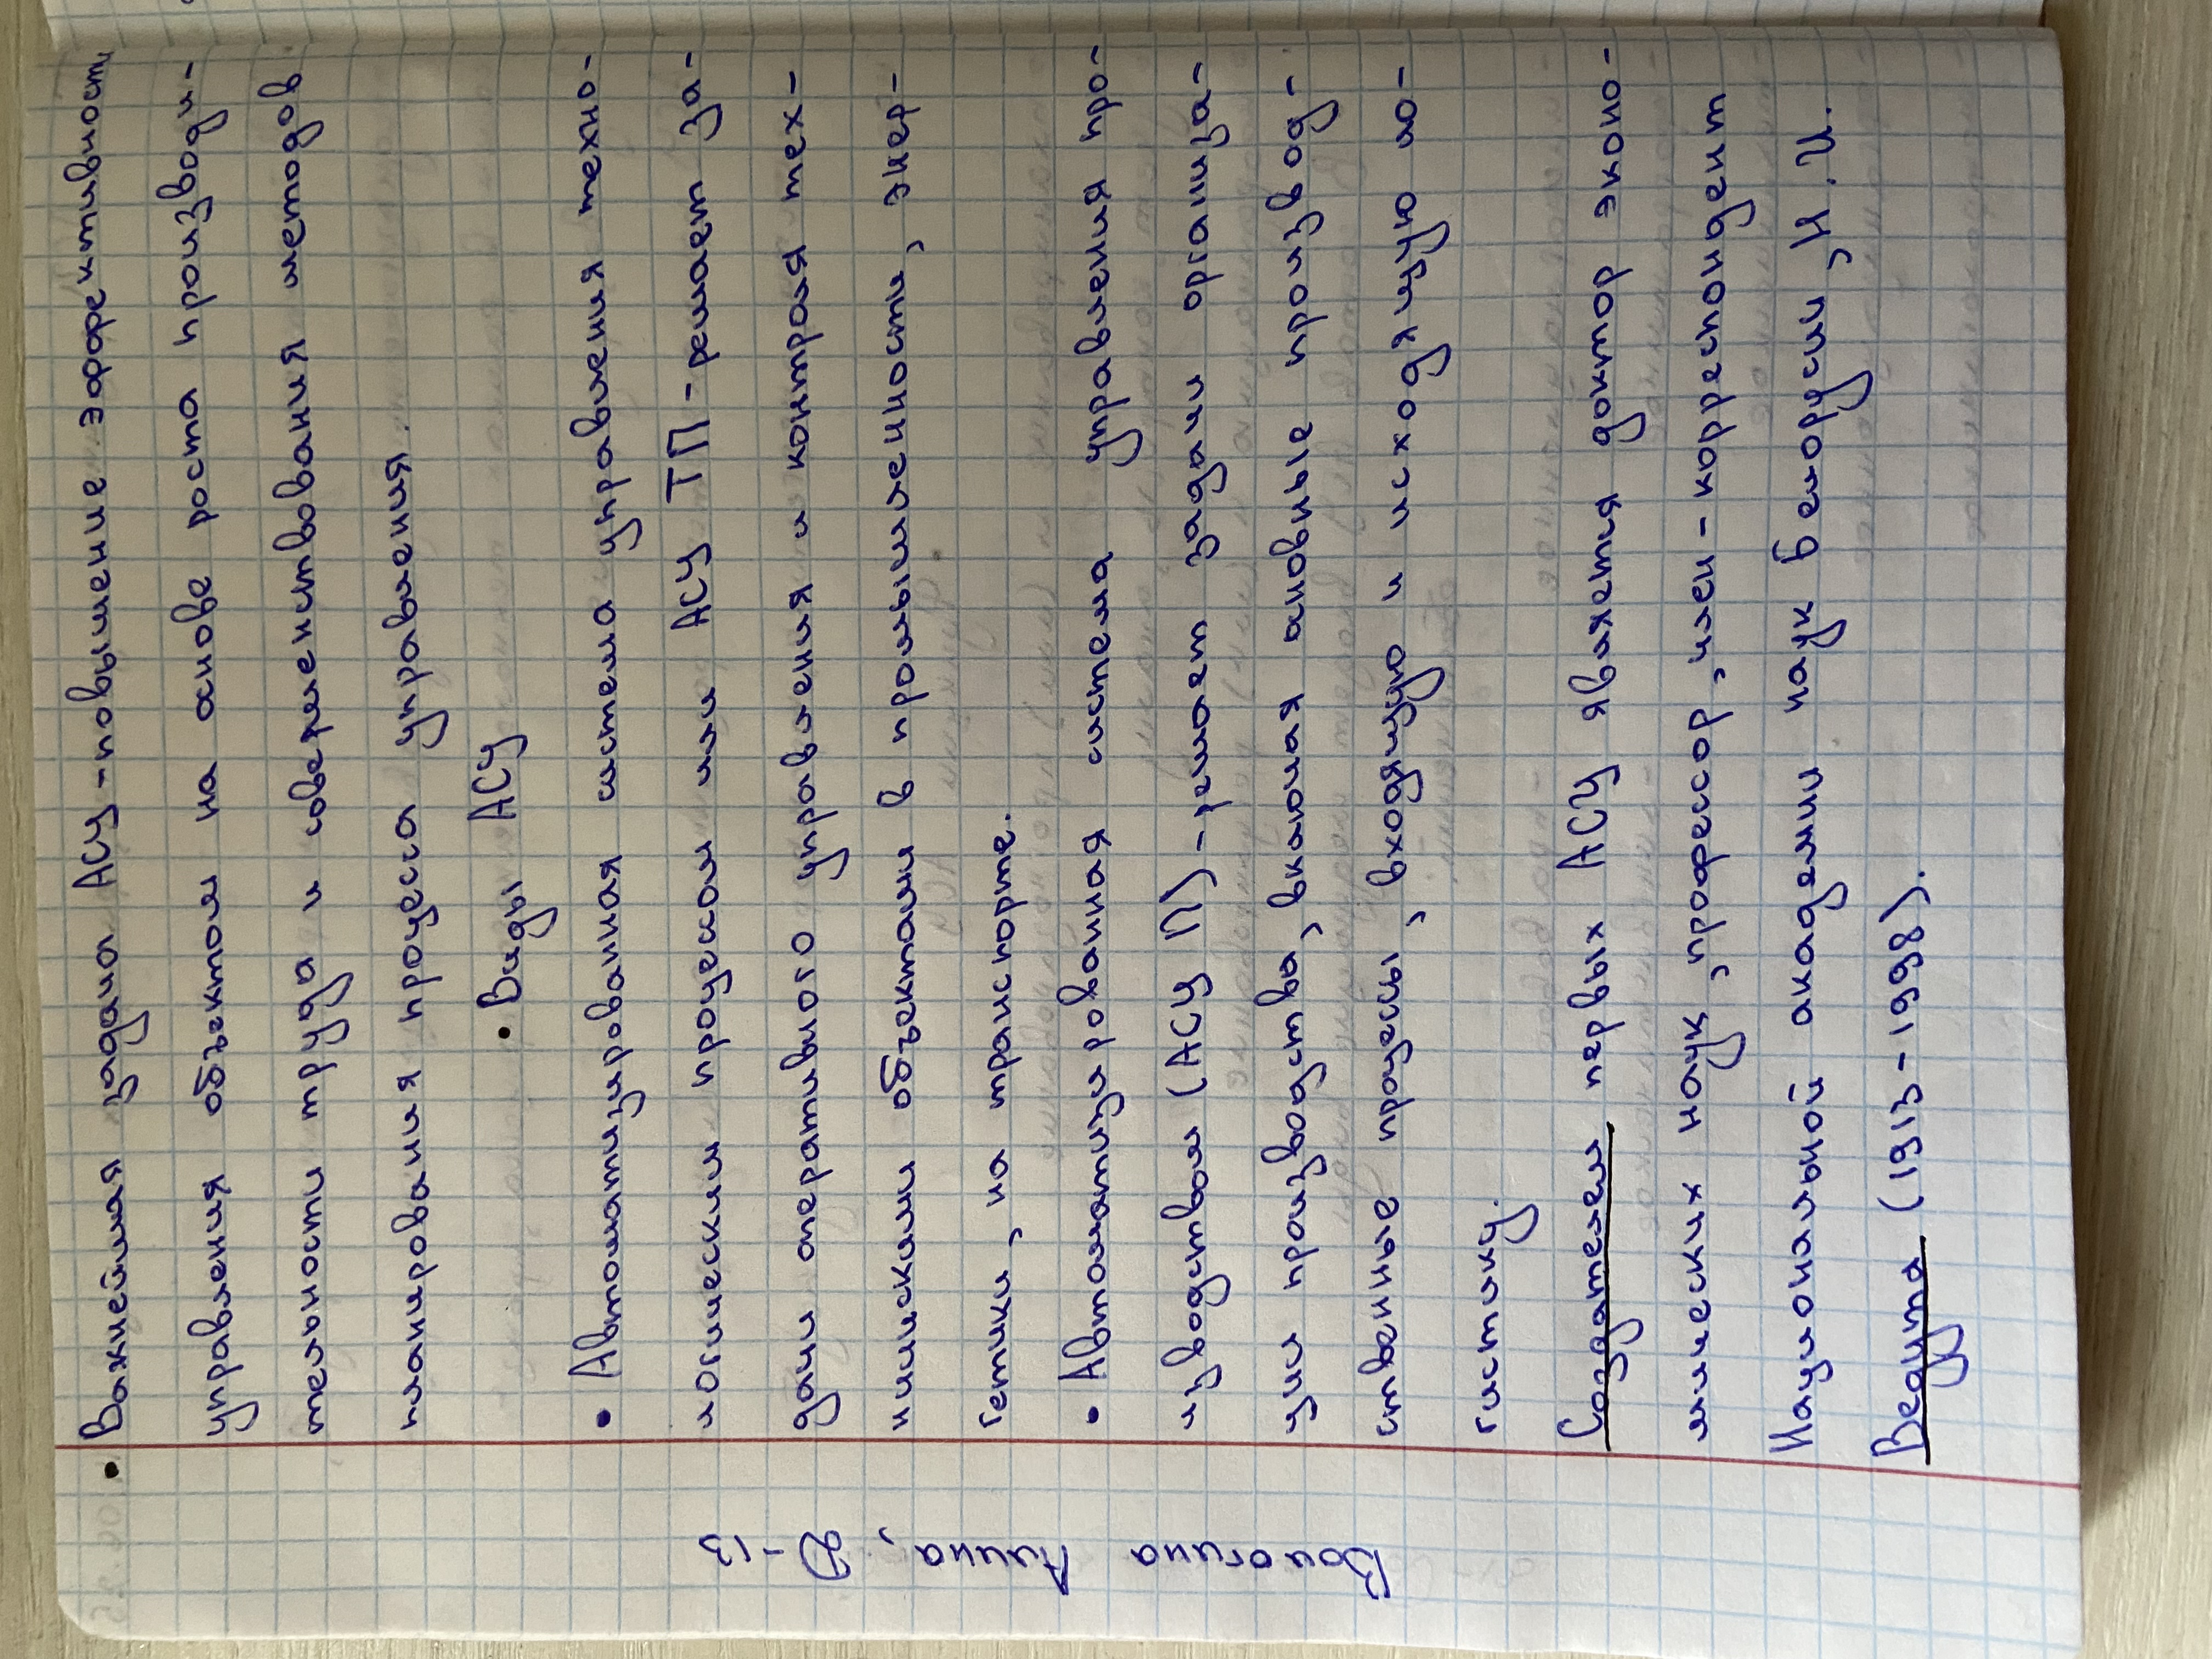 • Важнейшая задача АСУ-повышение эффективности
управления объектом на основе роста производи-
тельности труда и совершенствования методов
планирования процесса управления.
• Виды АСУ
• Автоматизированная система управления техно-
логическим процессом или АСУ ТП-решает за-
дачи оперативного управления и контроля тех-
ническими объектами в промышленности, энер-
гетики, на транспорте.
• Автоматизированная система управления про-
изводством (АСУ П)-решает задачи организа-
ции производства, включая основные производ-
ственные процессы, входящую и исходящую ло-
гистику.
Создателем первых АСУ является доктор эконо-
мических наук, профессор, член-корреспондент
Национальной академии наук Белоруссии, Н.И.
Ведута (1913-1998).
Вологина Алина, Д-13